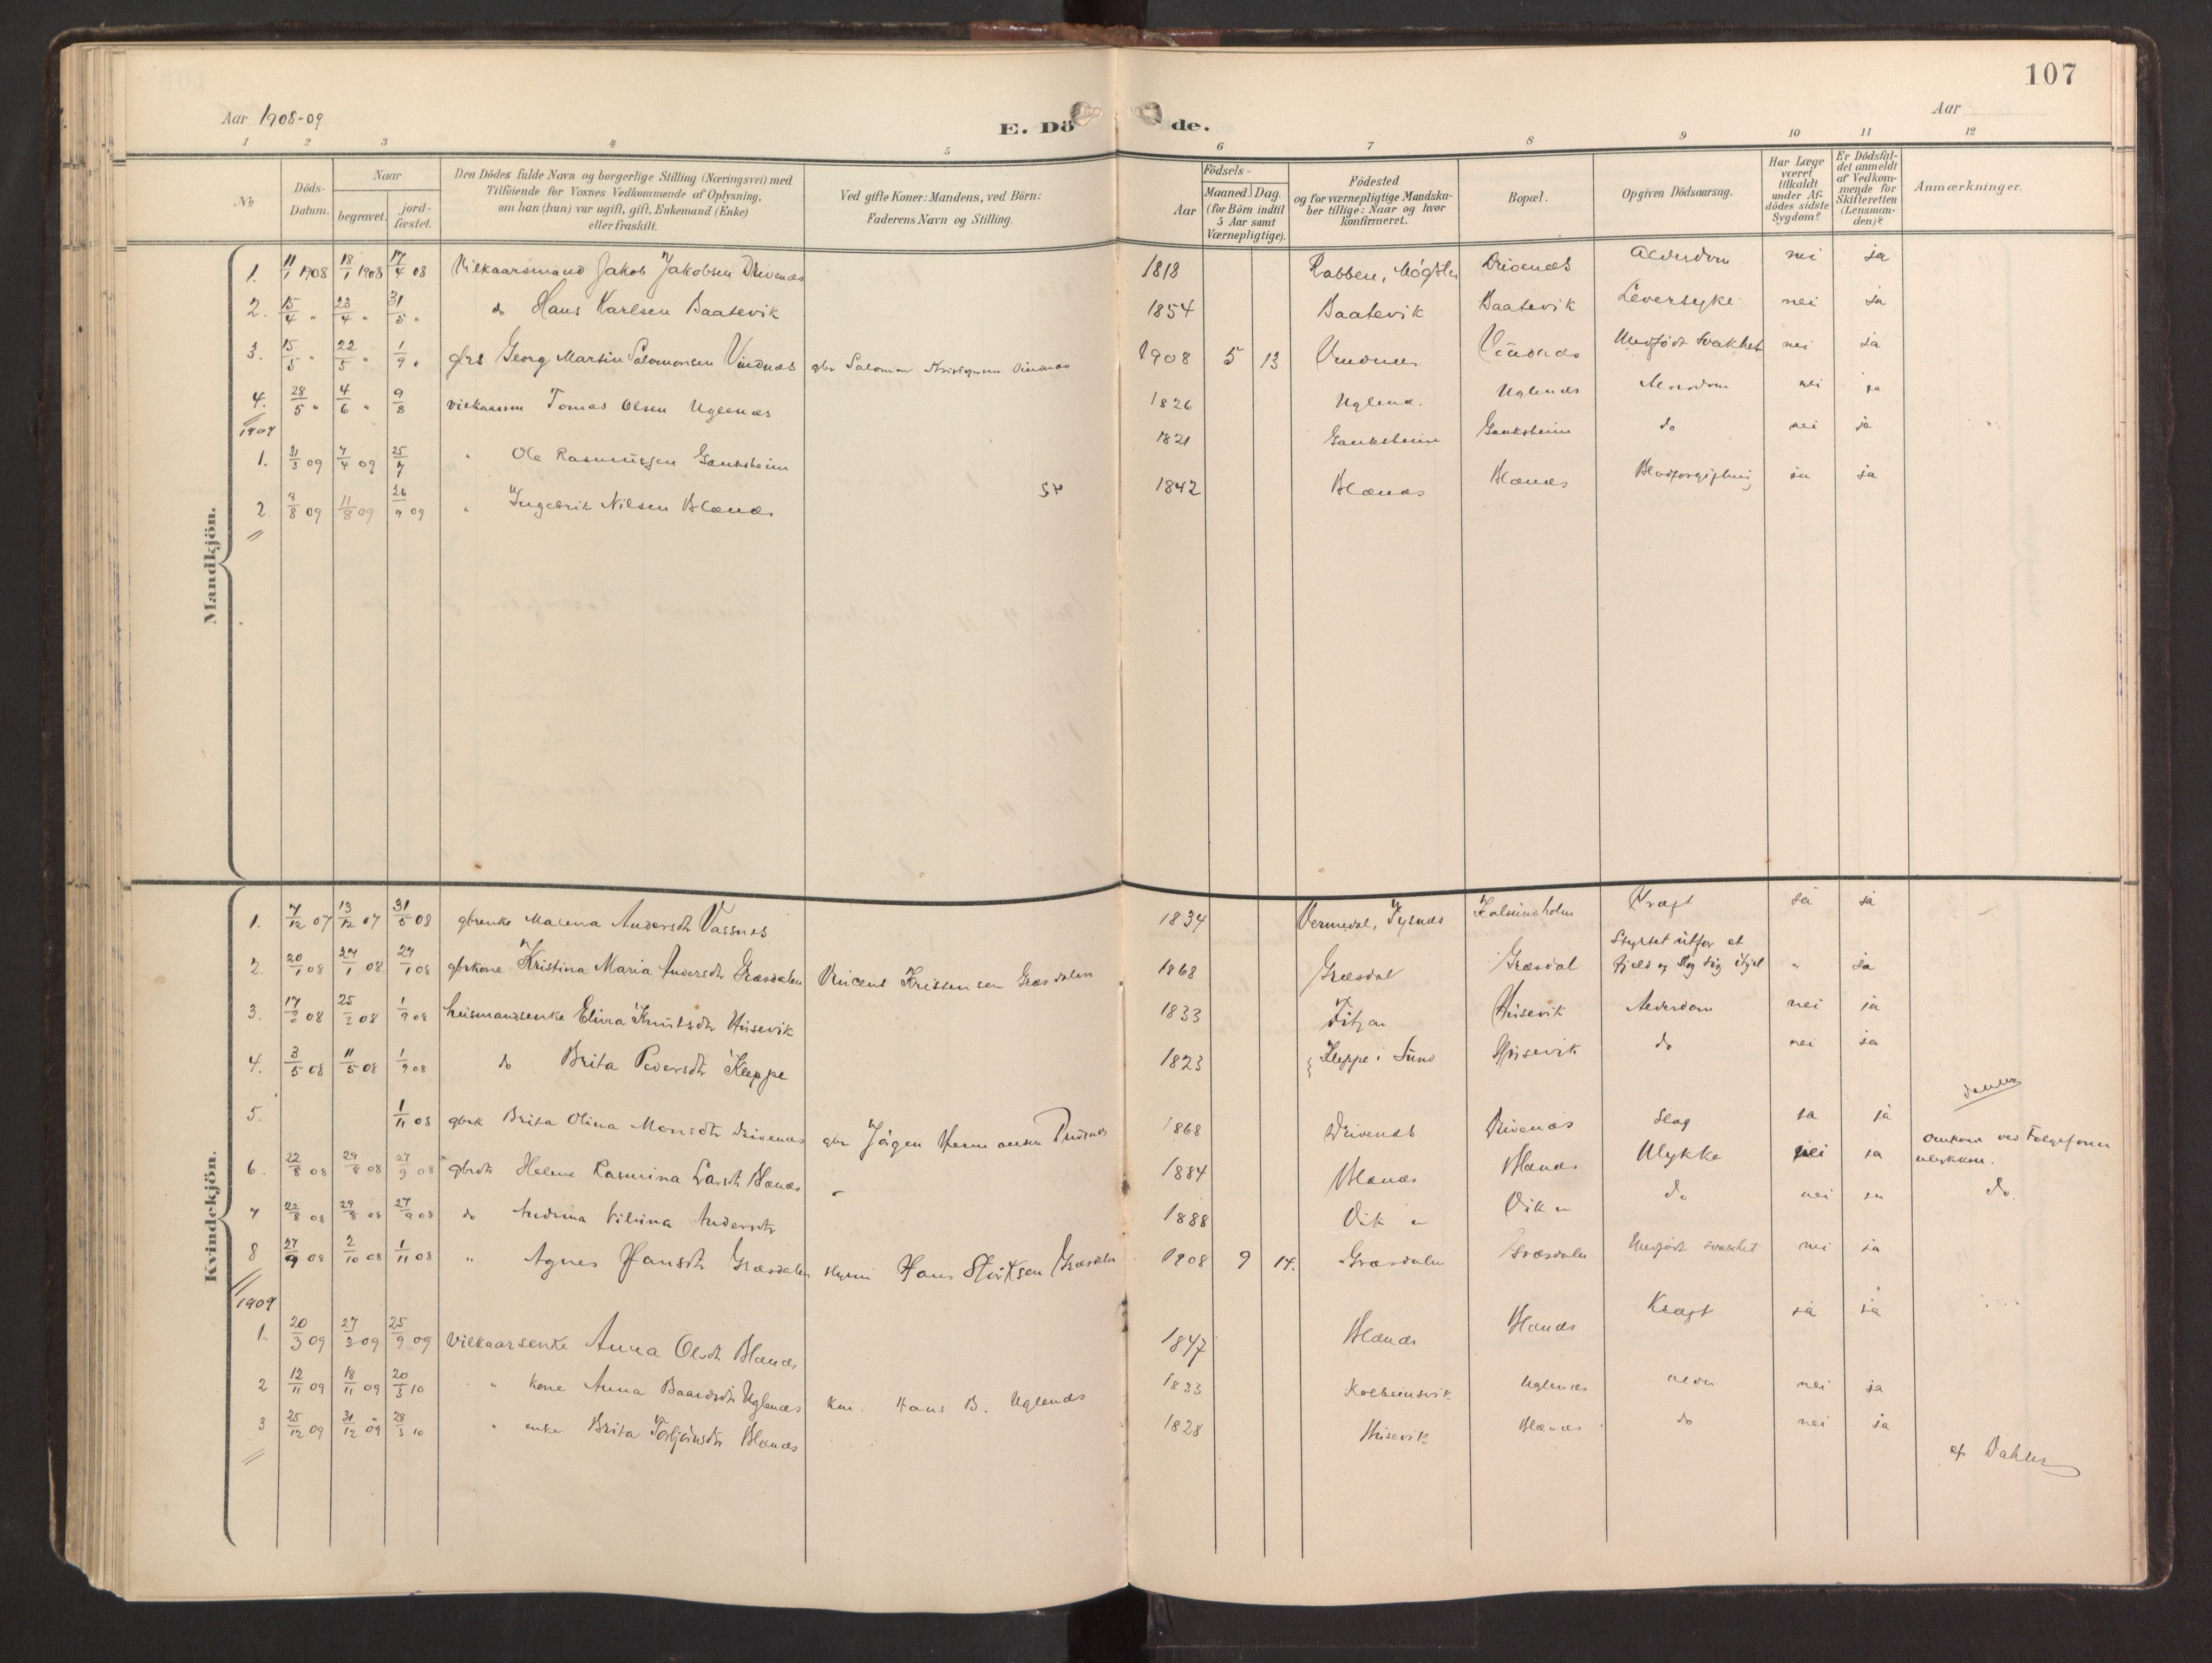 107
Aar 1908-09
E. Dö de.
Aar
1 2 3 4 5 6 7 8 9 10 11 12
No
Döds-Datum.
Naar
begravet.
jord-fæstet.
Den Dödes fulde Navn og borgerlige Stilling (Næringsvei) med
Tilföiende for Voxnes Vedkommende af Oplysning,
om han (hun) var ugift, gift, Enkemand (Enke)
eller fraskilt.
Ved gifte Koner: Mandens, ved Börn:
Faderens Navn og Stilling.
Födsels-
Aar
Maaned. Dag.
(for Börn indtil
5 Aar samt
Værnepligtige).
Födested
og for værnepligtige Mandska-
ber tillige: Naar og hvor
konfirmeret.
Bopæl.
Opgiven Dödsaarsag.
Har Læge
været
tilkaldt
under Af-
dödes sidste
Sygdom?
Er Dödsfal-
det anmeldt
af Vedkom-
mende for
Skifteretten
(Lensman-
den)?
Anmærkninger.
Mandkjön.
1. 11/1 1908 18/1 1908 17/4 08 Vilkaarsmand Jakob Jakobsen Drivenæs 1818 Rabben, Møgster Drivenæs Alderdom nei ja
2. 15/4 " 23/4 " 31/5 " do Hans Karlsen Baatevik 1854 Baatevik Baatevik Leversyke nei ja
3. 15/5 " 22/5 " 1/9 " gbrs Georg Martin Salomonsen Vindnæs gbr Salomon Vindnæs 1908 5 13 Vindnæs Vindnæs Medfødt Svakhet nei ja
4. 28/5 " 4/6 " 9/8 Tomas Olsen Uglenæs 1826 Uglenæ. Uglenæs Alderdom nei ja
1909
1. 31/3 09 7/4 09 25/7 " Ole Rasmussen Gauksheim 1821 Gauksheim Gauksheim do nei ja
2. 3/8 09 11/8 09 26/9 09 " Ingebrit Nilsen Blænæs 1842 Blænæs Blænæs Blodforgiftning ja ja
Kvindekjön.
1. 7/12 07 13/12 07 31/5 08 gbrenke Malena Andersdtr Vassnes 1834 Vermedal, Tysnæs Kalsundholm Kræft ja ja
2. 20/1 08 27/1 08 27/1 08 gbrkone Kristina Maria Andersdtr Græsdalen Vincens Kristensen Græsdalen 1868 Græsdal Græsdal Styrtet utfor et
fjeld og slog sig ihjel " ja
3. 17/2 08 25/2 08 1/9 08 husmandsenke Elina Knutsdtr Husevik 1833 Fitjar Husevik Alderdom nei ja
4. 3/5 08 11/5 08 1/9 08 do Brita Pedersdtr Kleppe 1823 Kleppe i Sund Husevik do nei ja
5. 1/11 08 gbrk Brita Olina Monsdtr Drivenæs gbr Jågen Hermansen 1868 Drivenæs Drivenæs Slag ja ja
6. 22/8 08 29/8 08 27/9 08 gbrdtr Helene Rasmina Larsdtr Blænæs " 1884 Blænæs Blænæs Ulykke nei ja Omkom ved Folgefonn
ulykken.
7 22/8 08 29/8 08 27/9 08 do Andrina Vilhina Andersdtr 1888 Vik Vik do nei ja do.
8 27/9 08 2/10 08 1/11 08 " Agnes Hansdtr Græsdalen Hans Størksen Græsdalen 1908 9 14. Græsdalen Græsdalen Medfødt svakhet nei ja
1909
1. 20/3 09 27/3 09 25/9 09 Vilkaarsenke Anna Olsdtr Blænæs 1847 Blænæs Blænæs Kræft ja ja
2 12/11 09 18/11 09 20/3 10 " kone Anna Baardsdtr Uglenæs Hans B. Uglenæs 1833 Kolbeinsvik Uglenæs nei ja
3 25/12 09 31/12 09 28/3 10 " enke Brita Torbjørnsdtr Blænæs 1828 Husevik Blænæs do nei ja
Dahler